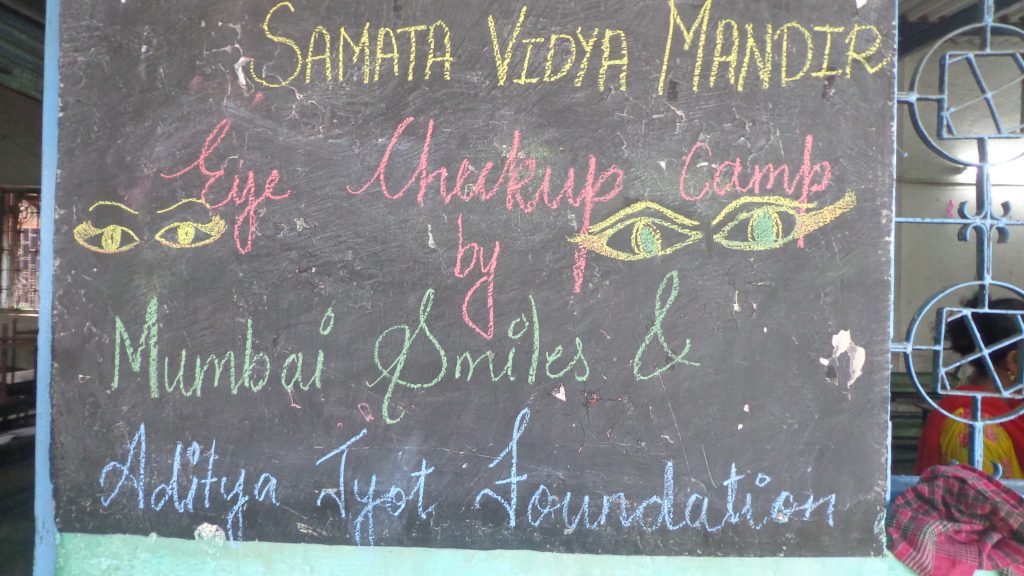 SAMATA VIDYA MANDIR
Eye Checkup Camp
by
Mumbai Smiles &
Aditya Jyot Foundation